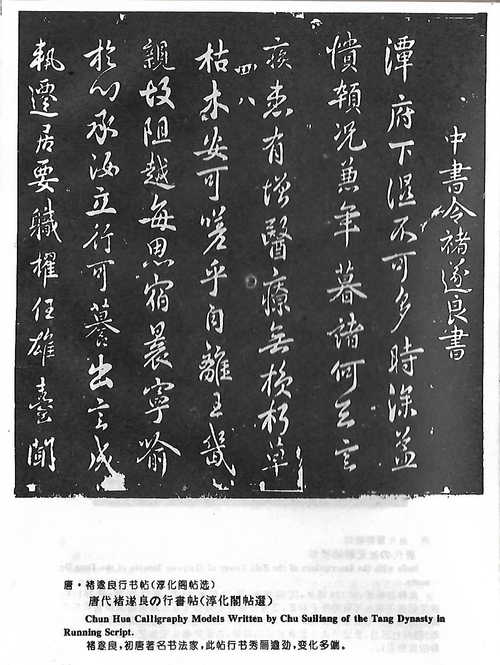 中書令褚遂良書
潭府下濕不可多時深益
憒頓况兼年暮諸何足言
疾患有增醫療無損朽草
四八
枯木安可嗟乎自離王畿
親故阻越每思宿晨寧喻
於心承汝立行可出言成
執遷居要職擢任雄臺聞
唐·褚遂良行书帖(淳化阁帖选)
唐代褚遂良の行書帖(淳化閣帖選)
Chun Hua Calligraphy Models Written by Chu Suiliang of the Tang Dynasty in
Running Script.
褚遂良,初唐著名书法家,此帖行书秀丽遒劲,变化多端。